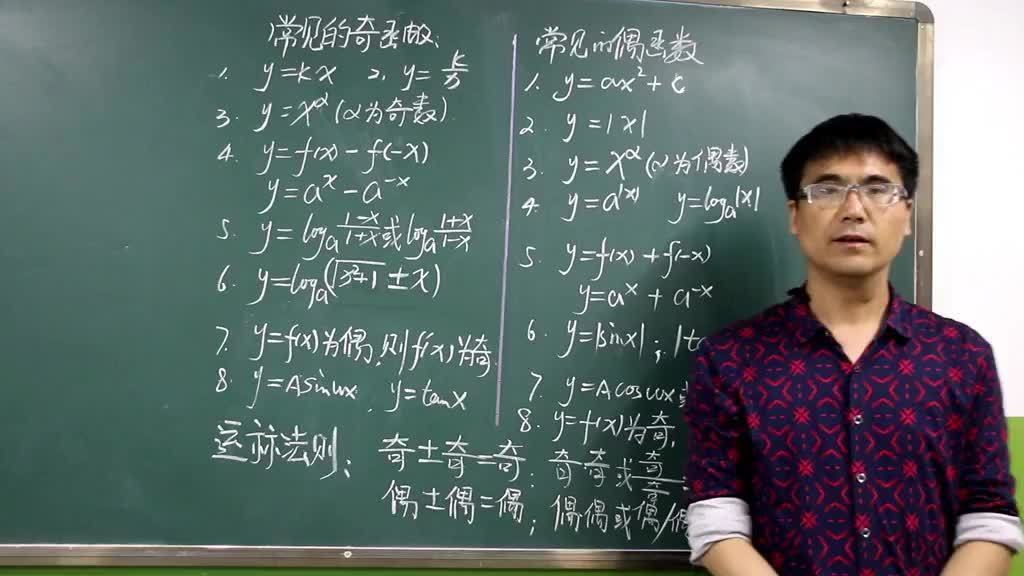 常见的奇函数:
1. y=kx 2. y=k/x
3. y=x^α (α为奇数)
4. y=f(x)-f(-x)
y=a^x-a^-x
5. y=log_a (1-x)/(1+x) 或 log_a (1+x)/(1-x)
6. y=log_a(√(x²+1) ± x)
7. y=f(x)为偶,则f'(x)为奇
8. y=Asinωx, y=tanx
常见的偶函数
1. y=ax²+c
2. y=|x|
3. y=x^α (α为偶数)
4. y=a^|x| y=log_a|x|
5. y=f(x)+f(-x)
y=a^x+a^-x
6. y=|sinx|;
7. y=Acosωx
8. y=f(x)为奇,
运算法则: 奇±奇=奇; 奇·奇或奇/奇=
偶±偶=偶; 偶偶或偶/偶